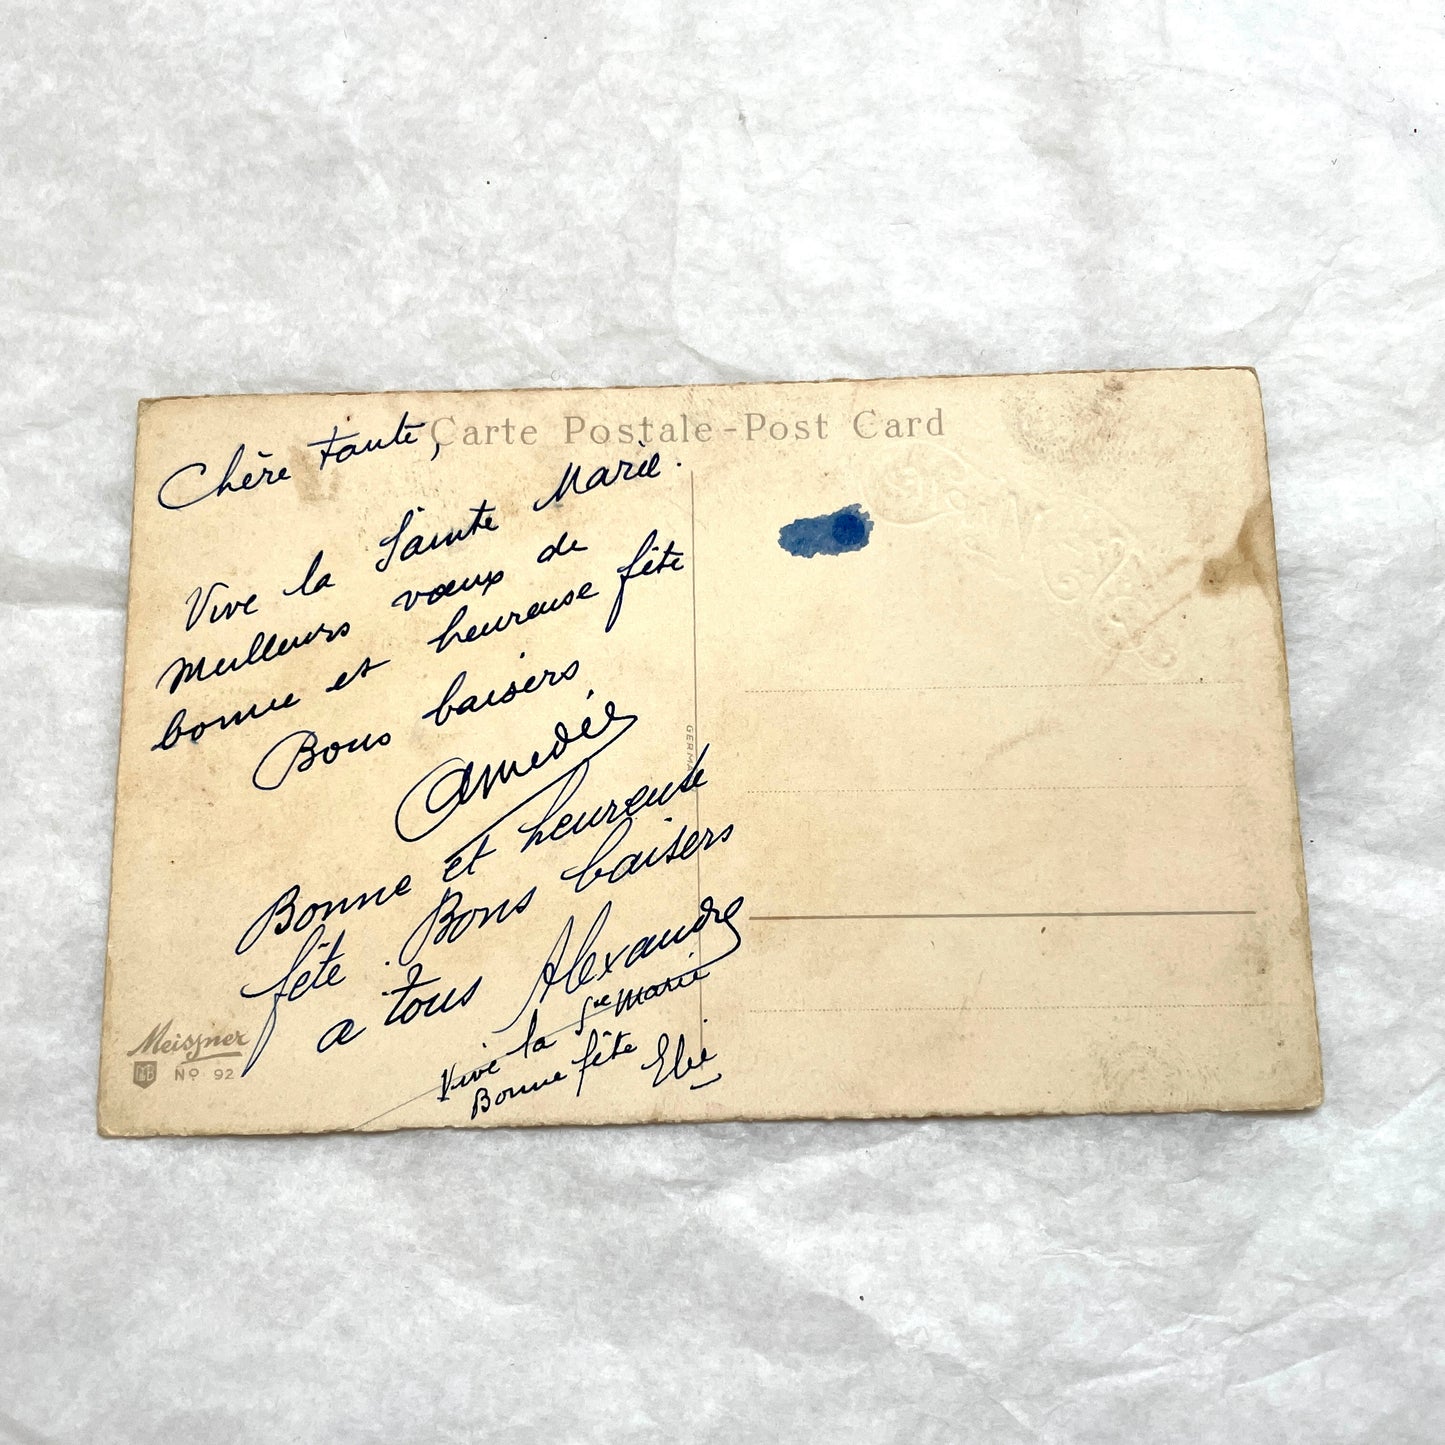 Carte Postale - Post Card
Chère tante,
Vive la Sainte Marie.
Meilleurs vœux de
bonne et heureuse fête
Bons baisers
Amedée
Bonne et heureuse
fête. Bons baisers
a tous Alexandre
Vive la Ste Marie
Bonne fête
GERMA
Meissner
MB
No 92